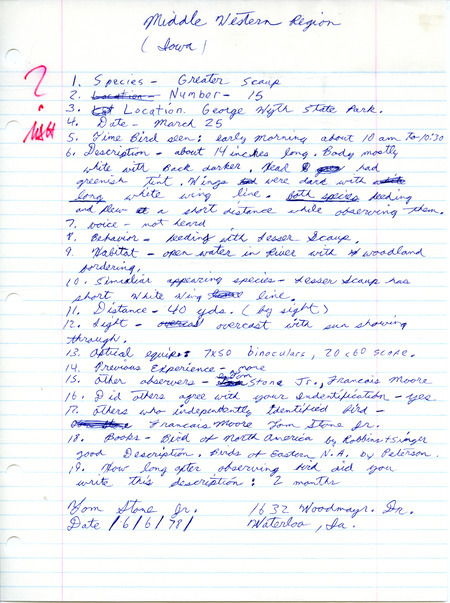 Middle Western Region
(Iowa)
?
1. Species - Greater Scaup
2. Location - Number - 15
3. Location George Wyth State Park.
4. Date - March 25
5. Time Bird seen: early morning about 10 am to 10:30
6. Description - about 14 inches long. Body mostly
white with Back darker. Head had
greenish tint. Wings were dark with
long white wing line. both species feeding
and flew a short distance while observing them.
7. voice - not heard
8. Behavior - feeding with Lesser Scaup.
9. Habitat - open water in River with woodland
bordering.
10. Simaliar appearing species - Lesser Scaup has
short White Wing line.
11. Distance - 40 yds. (by sight)
12. Light - overcast with sun showing
through.
13. Optical equip: 7x50 binoculars, 20x60 scope.
14. Previous Experience - none
15. Other observers - Tom Stone Jr., Francais Moore
16. Did others agree with your Indentification - yes
17. Others who indepentently Identified bird -
Francais Moore Tom Stone Jr.
18. Books - Bird of North America by Robbins + Singer
good Description. Birds of Eastern N.A. by Peterson.
19. How long after observing bird did you
write this description: 2 months
Tom Stone Jr. 1632 Woodmayr. Dr.
Date /6/6/78/ Waterloo, Ia.